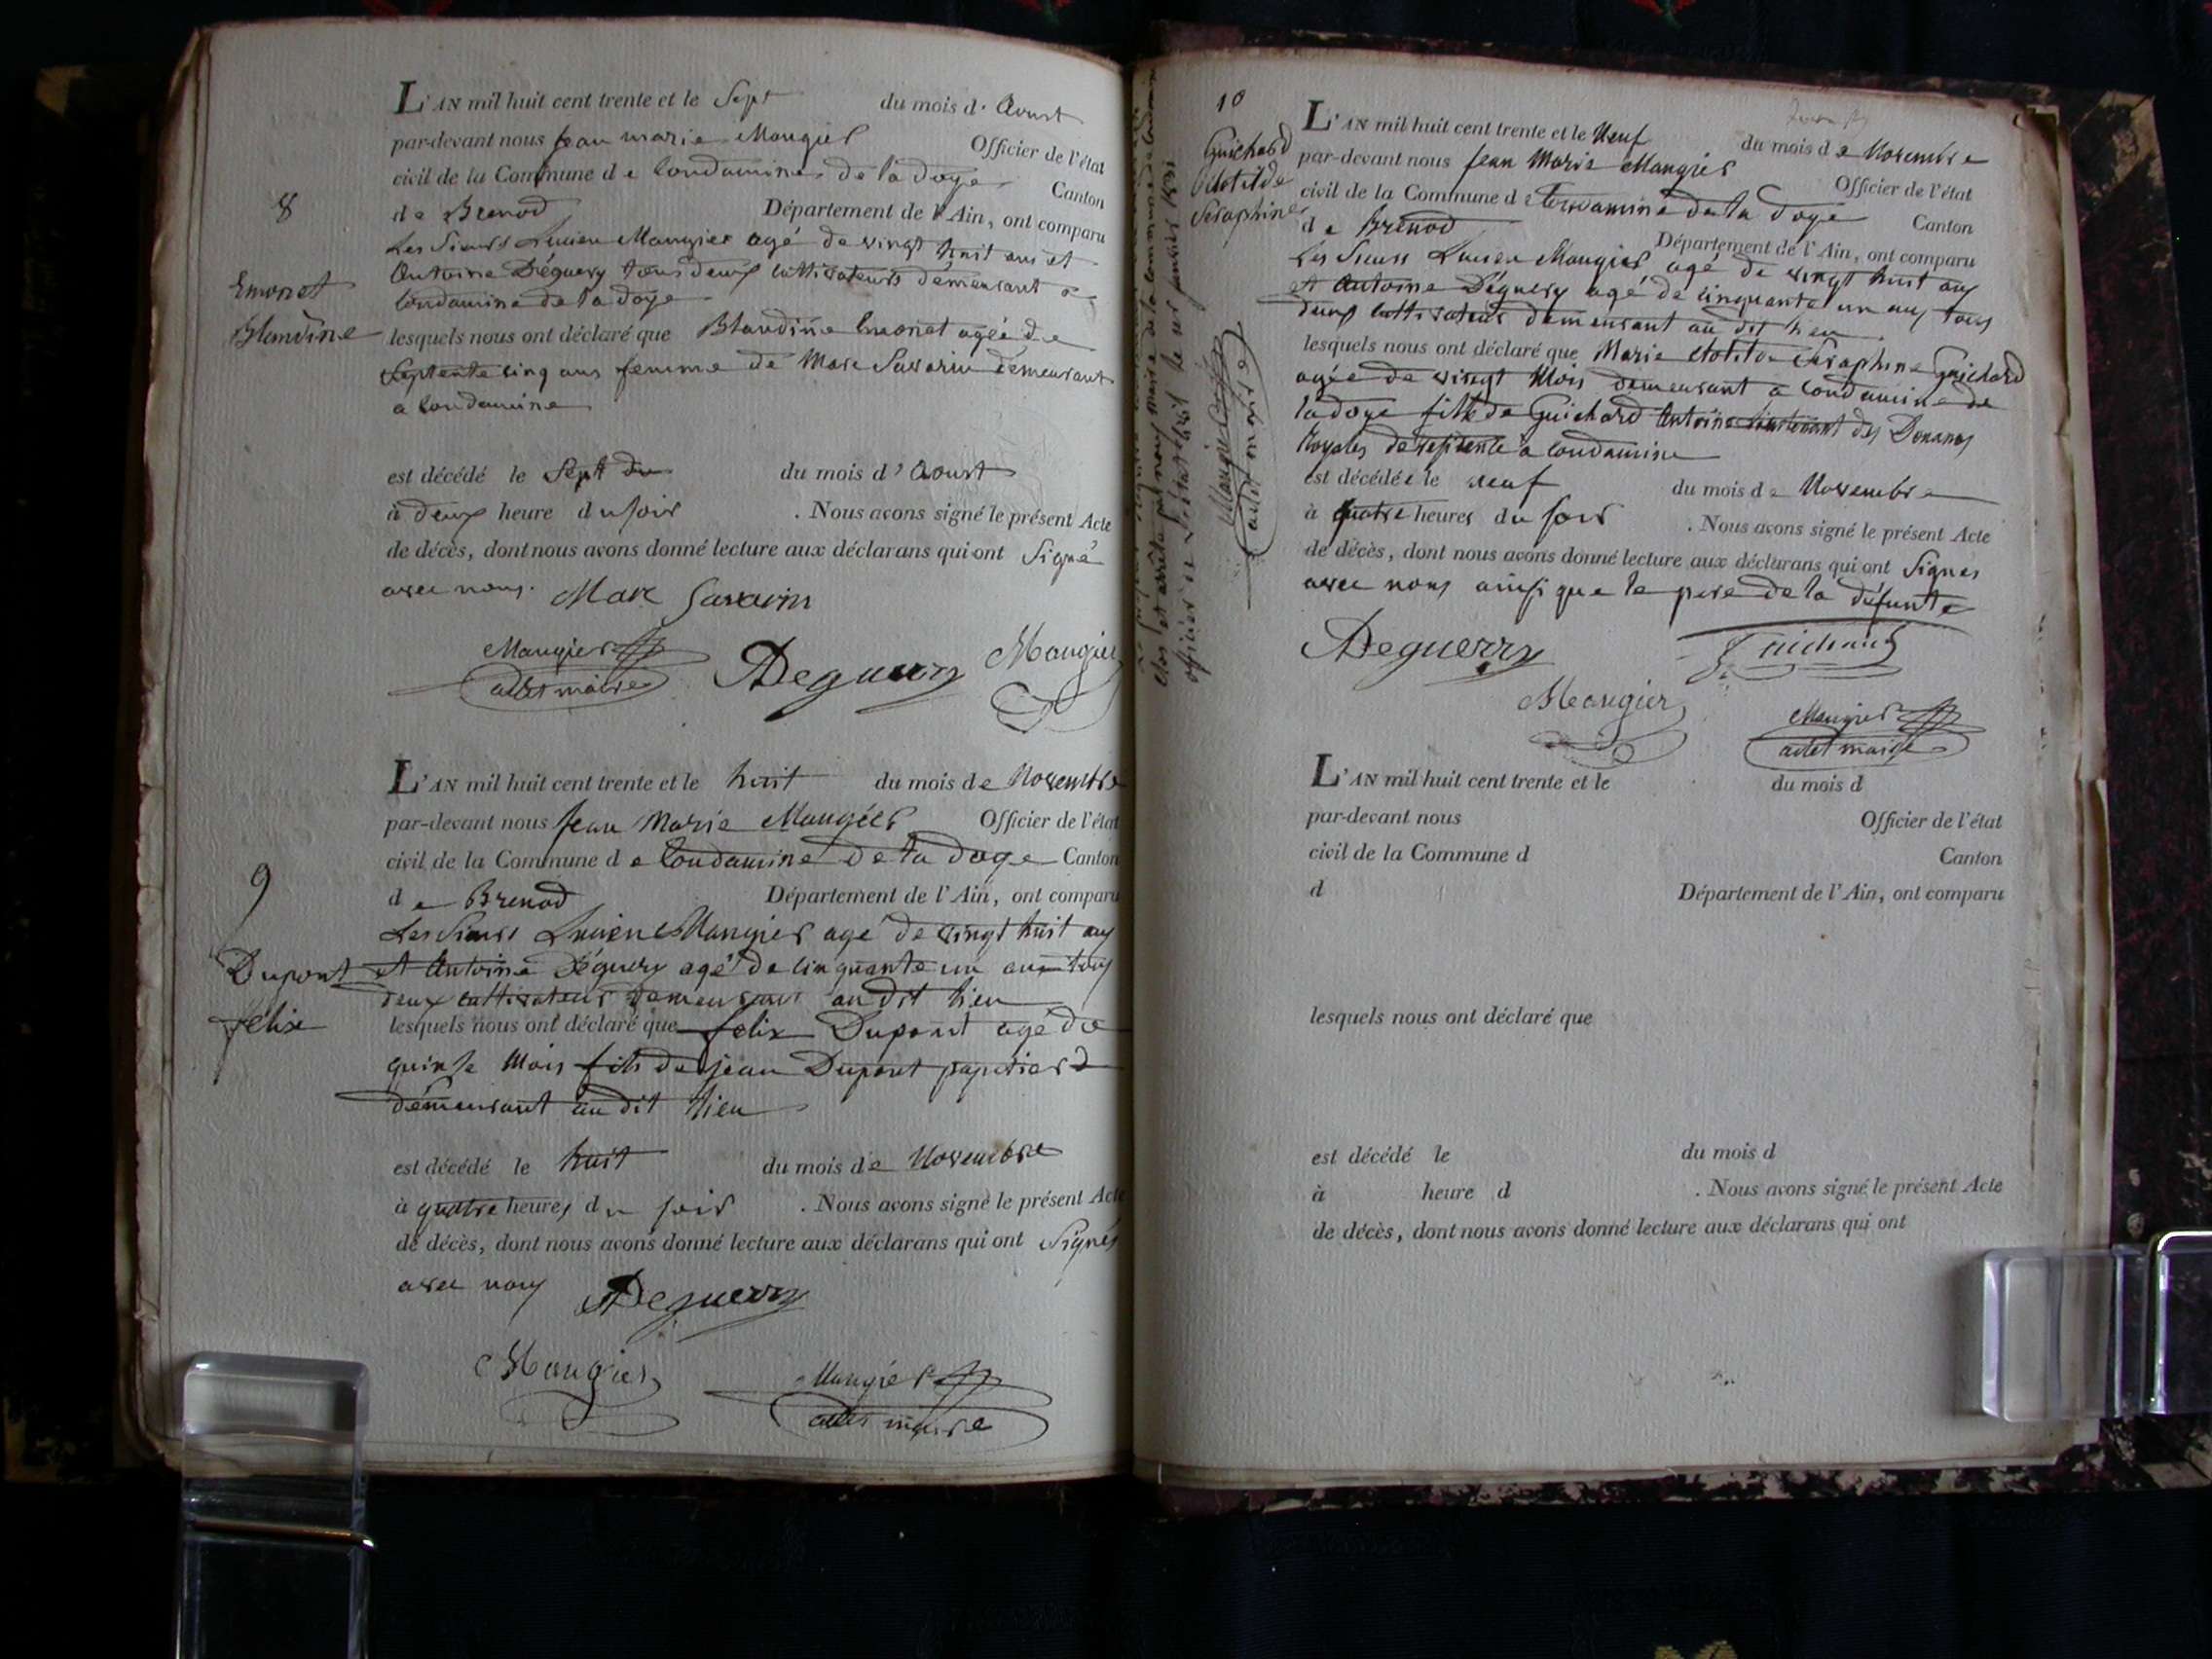 8
Emonet
Blandine
L'AN mil huit cent trente et le Sept du mois d'Aoust
par-devant nous jean marie Maugier Officier de l'état
civil de la Commune de Condamine de la doye Canton
de Brenod Département de l'Ain, ont comparu
Les Sieurs Lucien Maugier agé de vingt huit ans et
Antoine Déguery tous deux cultivateurs demeurant a
Condamine de la doye
lesquels nous ont déclaré que Blandine Emonet agée de
Septente cinq ans femme de Marc Savarin demeurant
a Condamine
est décédé le Sept du mois d'Aoust
à deux heure du soir . Nous avons signé le présent Acte
de décès, dont nous avons donné lecture aux déclarans qui ont Signé
avec nous. Marc Savarin
Maugier
Deguerry
Maugier
9
Dupont
félix
L'AN mil huit cent trente et le huit du mois de Novembre
par-devant nous jean Marie Maugier Officier de l'état
civil de la Commune de Condamine de la doye Canton
de Brenod Département de l'Ain, ont comparu
Les Sieurs Lucien Maugier agé de vingt huit ans
et Antoine Déguery agé de cinquante un ans tous
deux cultivateurs demeurant au dit lieu
lesquels nous ont déclaré que felix Dupont agé de
quinse Mois fils de jean Dupont papetier
demeurant au dit lieu
est décédé le huit du mois de Novembre
à quatre heures du soir . Nous avons signé le présent Acte
de décès, dont nous avons donné lecture aux déclarans qui ont Signés
avec nous Deguerry
Maugier
Maugier
10
Guichard
Clotilde
Seraphine
L'AN mil huit cent trente et le Neuf du mois de Novembre
par-devant nous jean Marie Maugier Officier de l'état
civil de la Commune de Condamine de la doye Canton
de Brenod Département de l'Ain, ont comparu
Les Sieurs Lucien Maugier agé de vingt huit ans
et Antoine Déguery agé de cinquante un ans tous
deux cultivateurs demeurant au dit lieu
lesquels nous ont déclaré que Marie Clotilde Seraphine Guichard
agée de vingt Mois demeurant a Condamine de
ladoye fille de Guichard Antoine Lieutenant des Douanes
Royales a Condamine
est décédée le neuf du mois de Novembre
à quatre heures du soir . Nous avons signé le présent Acte
de décès, dont nous avons donné lecture aux déclarans qui ont Signes
avec nous ainsi que le pere de la défunte
Deguerry
Guichard
Maugier
Maugier
L'AN mil huit cent trente et le du mois d
par-devant nous Officier de l'état
civil de la Commune d Canton
d Département de l'Ain, ont comparu
lesquels nous ont déclaré que
est décédé le du mois d
à heure d . Nous avons signé le présent Acte
de décès, dont nous avons donné lecture aux déclarans qui ont